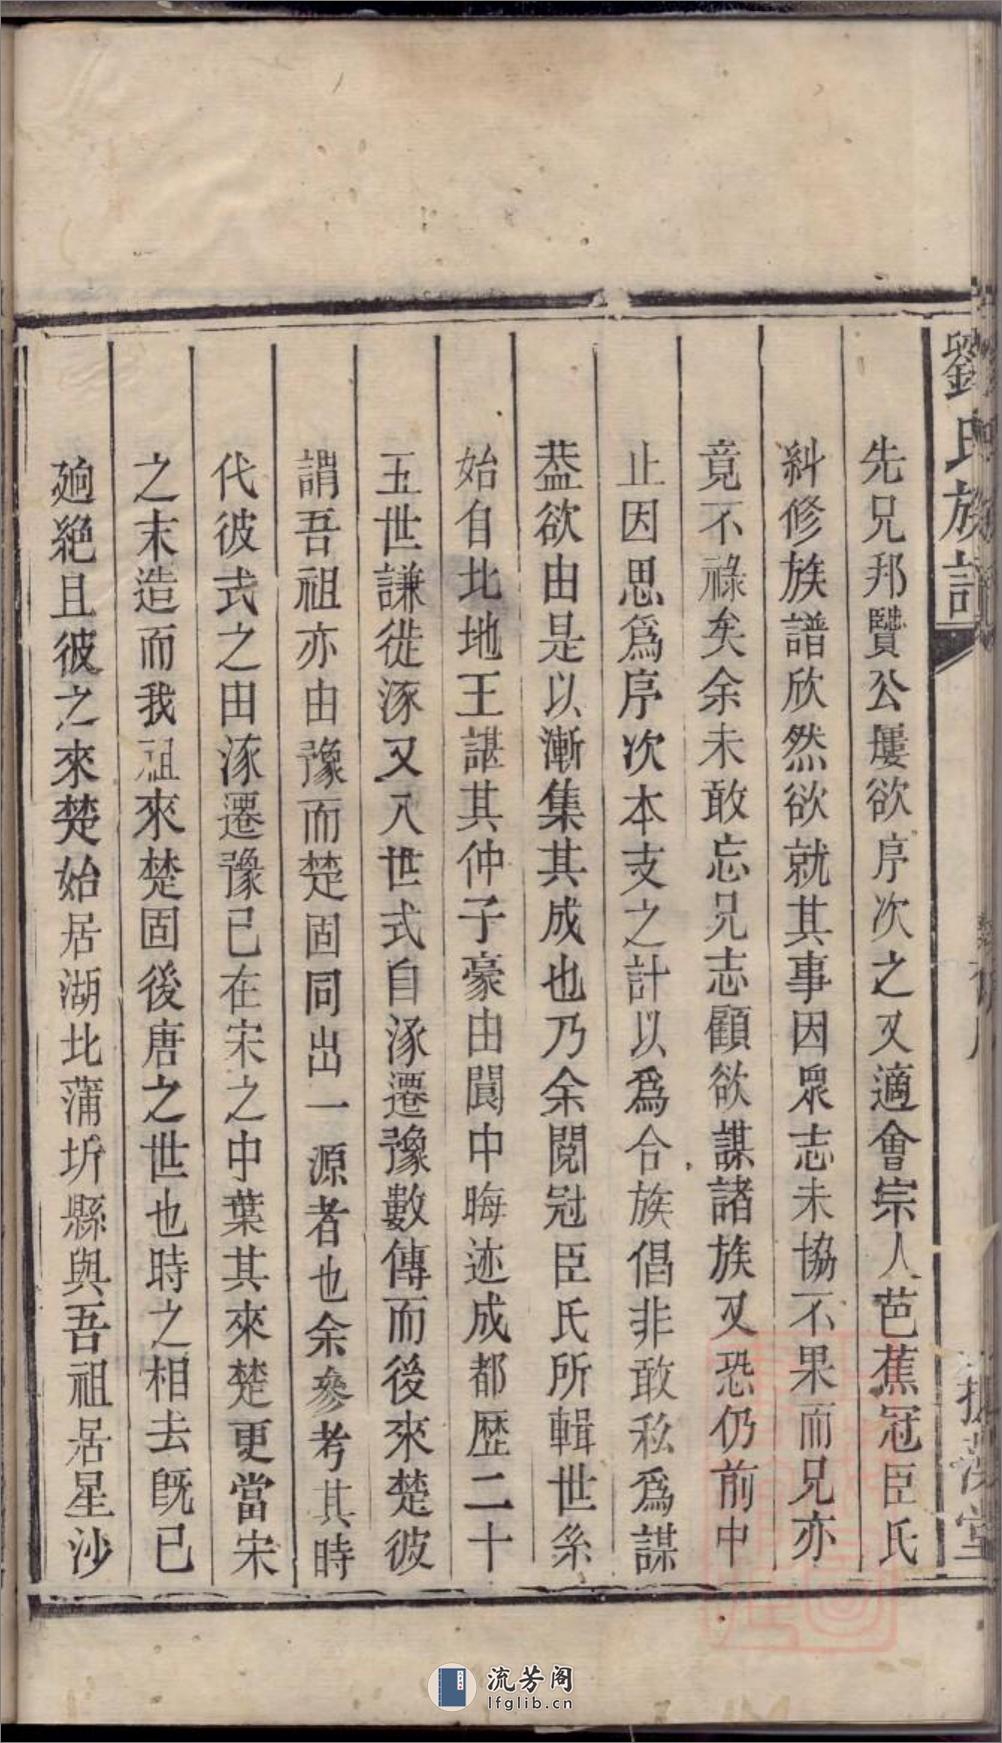 劉氏族譜
先兄邦賢公屢欲序次之又適會宗人芭蕉冠臣氏
糾修族譜欣然欲就其事因眾志未協不果而兄亦
竟不祿矣余未敢忘兄志顧欲謀諸族又恐仍前中
止因思爲序次本支之計以爲合族倡非敢私爲謀
葢欲由是以漸集其成也乃余閱冠臣氏所輯世系
始自北地王諶其仲子豪由閬中晦迹成都歷二十
五世謙徙涿又八世式自涿遷豫數傳而後來楚彼
謂吾祖亦由豫而楚固同出一源者也余參考其時
代彼式之由涿遷豫已在宋之中葉其來楚更當宋
之末造而我祖來楚固後唐之世也時之相去既已
逈絶且彼之來楚始居湖北蒲圻縣與吾祖居星沙
流芳阁
lfglib.cn